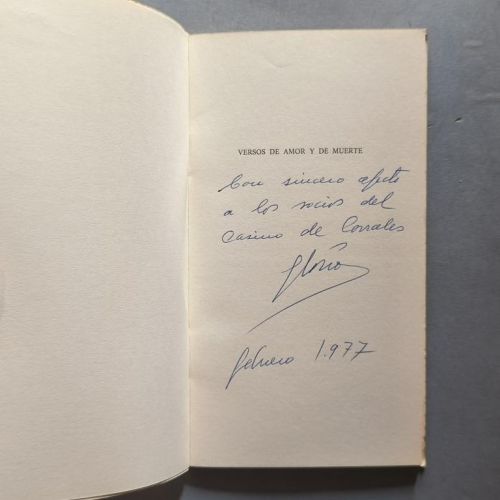 VERSOS DE AMOR Y DE MUERTE
Con sincero afecto
a los socios del
Casino de Corrales
febrero 1.977